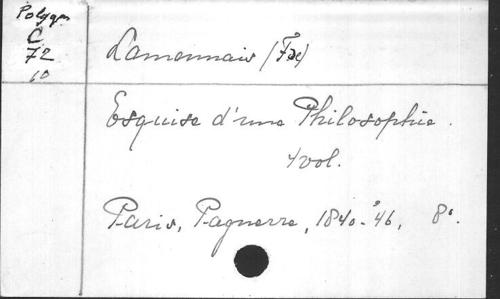 Polygr.
C
72
10
Lamennais (F de)
Esquise d'une Philosophie.
4 vol.
Paris, Pagnerre, 1840-46, 8°.